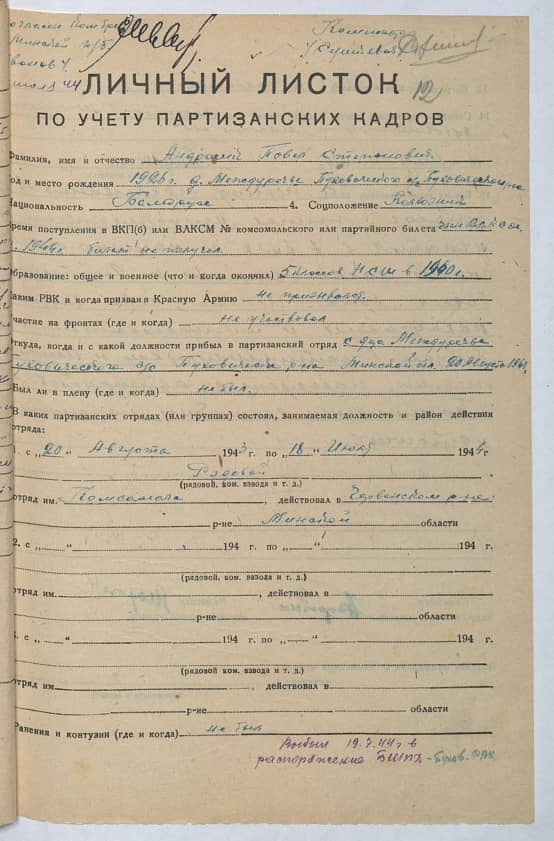 ЛИЧНЫЙ ЛИСТОК
12
ПО УЧЕТУ ПАРТИЗАНСКИХ КАДРОВ
Фамилия, имя и отчество Павел Степанович.
од и место рождения 1926 г. д. Междуречье Пуховичского с/с Пуховичского р-на
Национальность Белорус 4. Соцположение Колхозник
ремя поступления в ВКП(б) или ВЛКСМ № комсомольского или партийного билета
билет не получал.
бразование: общее и военное (что и когда окончил) 5 классов НСШ в 1940 г.
аким РВК и когда призван в Красную Армию не призывался.
частие на фронтах (где и когда) не участвовал
ткуда, когда и с какой должности прибыл в партизанский отряд с д. Междуречье
Пуховического с/с Пуховическ р-на Минской обл. 20 Августа 1943
Был ли в плену (где и когда) не был.
В каких партизанских отрядах (или группах) состоял, занимаемая должность и район действия
отряда:
1. с „20“ Августа 1943 г. по „18“ Июля 1944 г
Рядовой
(рядовой, ком. взвода и т. д.)
отряд им. Комсомола, действовал в р-не
р-не Минской области
2. с „ “ 194 г. по „ “ 194 г.
(рядовой, ком. взвода и т. д.)
отряд им. , действовал в
р-не области
3. с „ “ 194 г. по „ “ 194 г.
(рядовой, ком. взвода и т. д.)
отряд им. , действовал в
р-не области
Ранения и контузии (где и когда) не был
Выбыл 19.7.44 г. в
распоряжение БШПД - Пухов. РВК